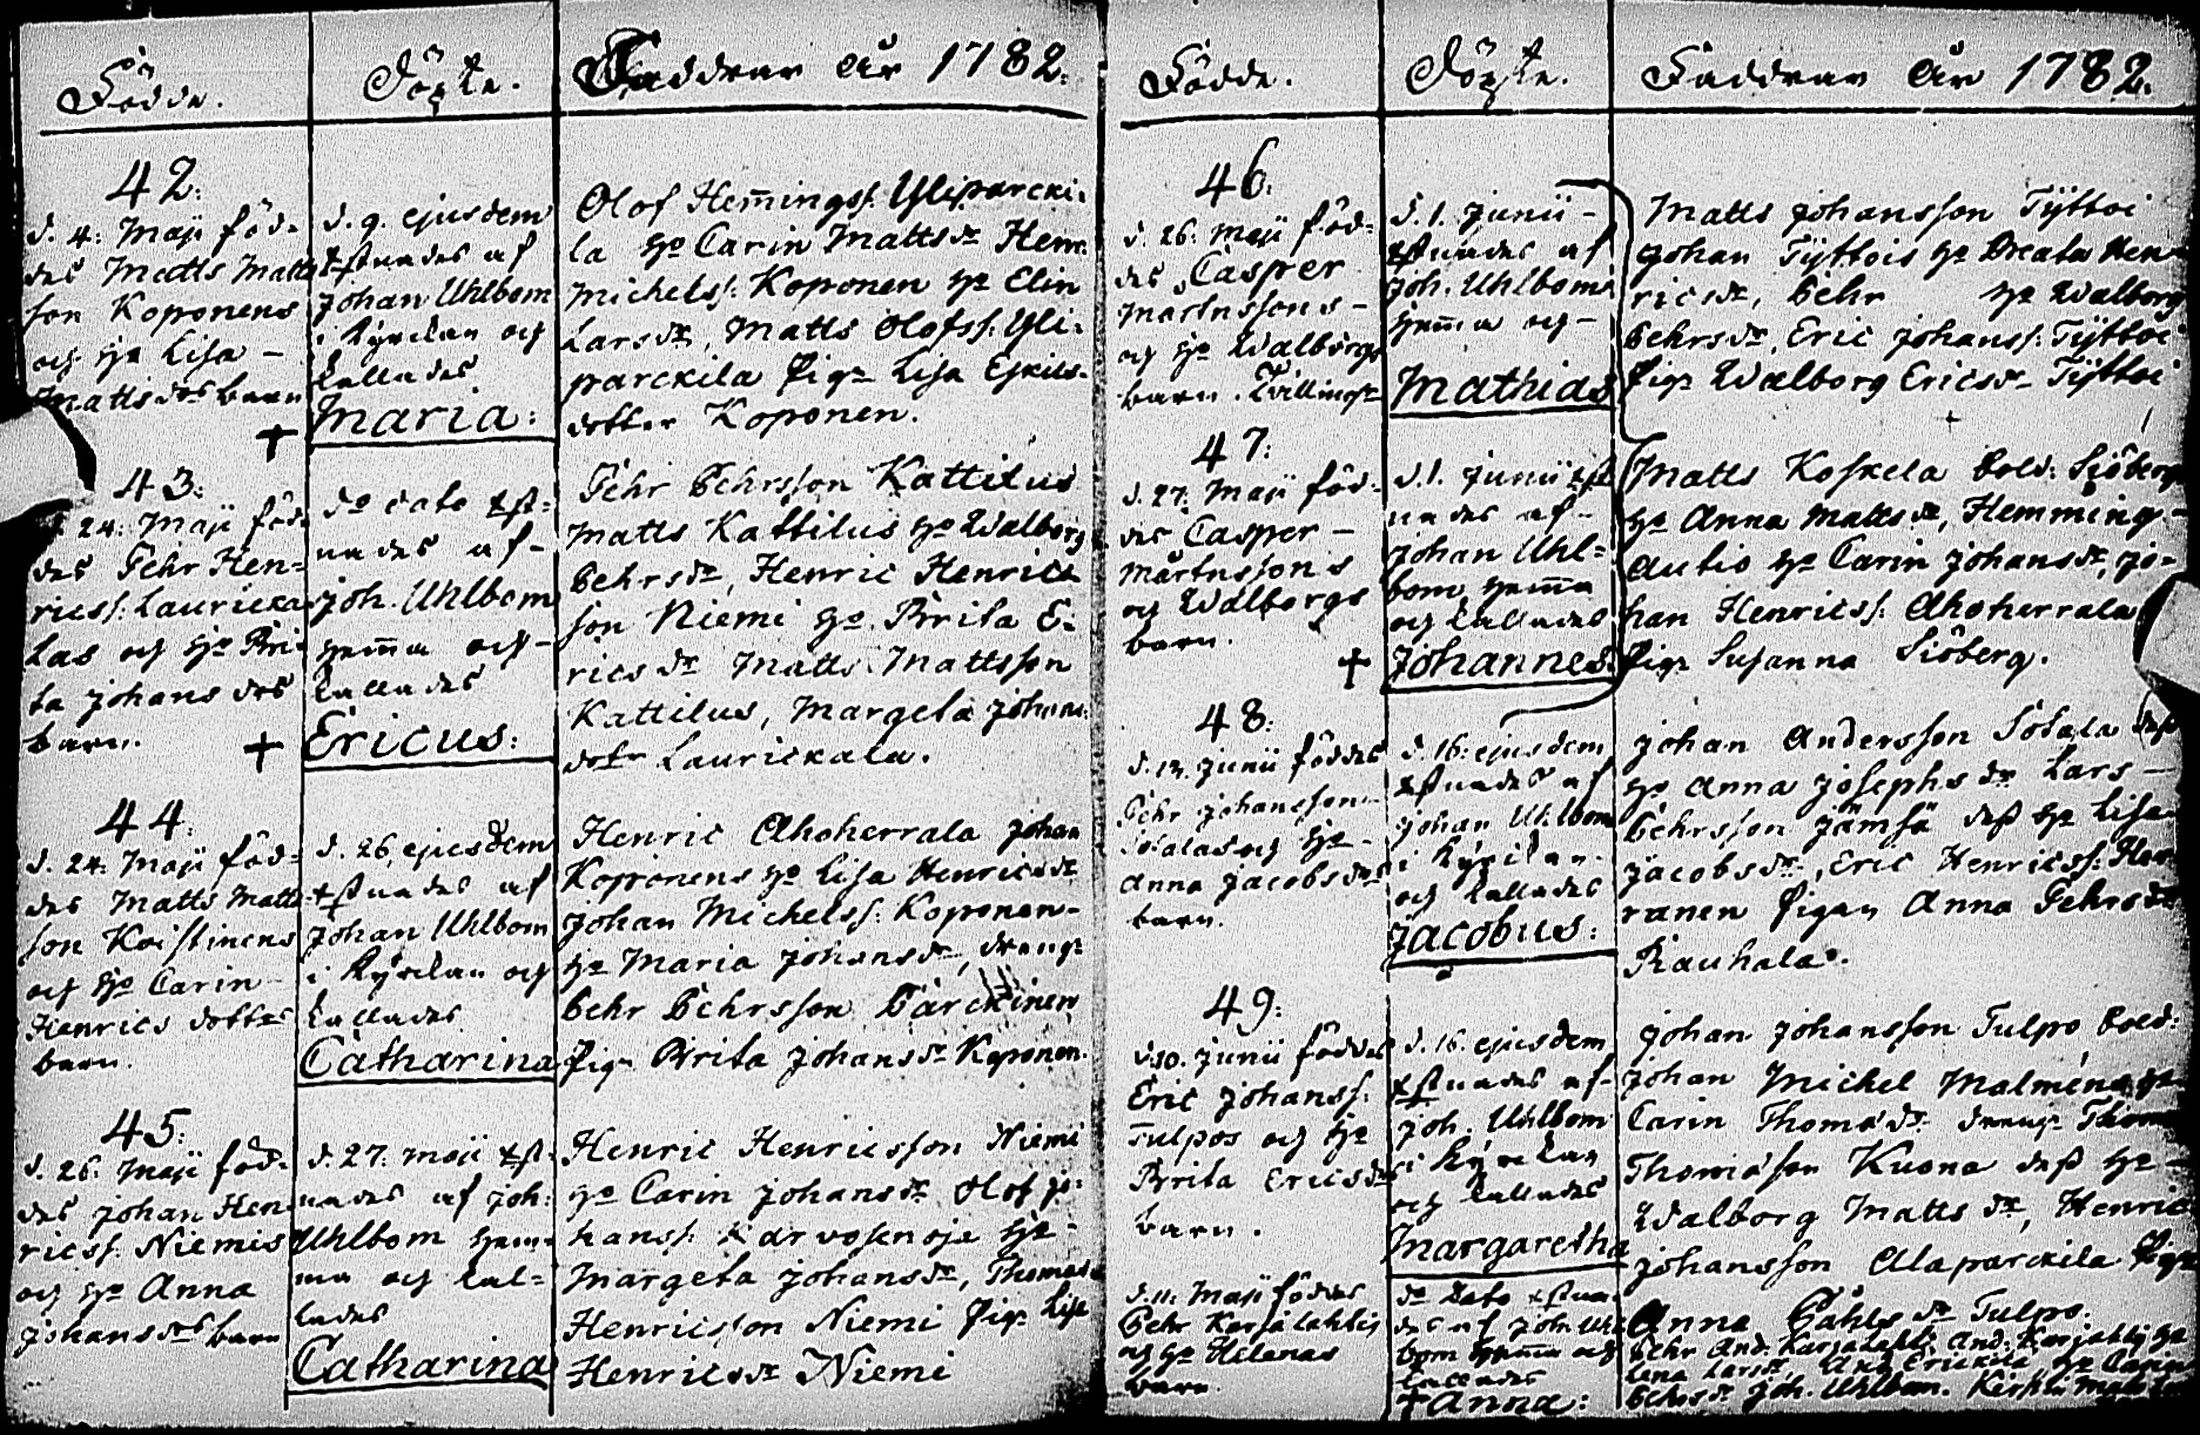 Födde.
Döpte.
Faddrar År 1782.
42.
d. 4. Maji föd-
des Matts Matts
son Koponens
och H:o Lisa -
Mattsdrs barn
+
d. 9. ejusdem
xstnades af
Johan Uhlbom
i Kyrckan och
kallades
Maria:
Olof Hemingss: Yliparcki-
la H:o Carin Mattsdr Henr.
Michelss: Koponen H:o Elin
Larsdr, Matts Olofss: Yli-
parckila Pig: Lisa
dotter Koponen.
43.
d. 24. Maji föd-
des Pehr Hen-
ricss: Lauricka-
las och H:o Bri-
ta Johansdrs
barn.
+
do dato xst-
nades af -
Joh. Uhlbom
hemma och -
kallades
Ericus:
Pehr Pehrsson Kattilus
Matts Kattilus H:o Walborg
Pehrsdr, Henric Henrics
son Niemi H:o Brita E-
ricsdr Matts Mattsson
Kattilus, Margeta Johans
dotr Laurickala.
44.
d. 24. Maji föd-
des Matts Matts
son Koistinens
och H:o Carin -
Henrics dotters
barn.
d. 26. ejusdem
xstnades af
Johan Uhlbom
i Kyrckan och
kallades
Catharina
Henric Ahoherrala Johan
Koponens H:o Lisa Henricsdr
Johan Michelss: Koponen -
H:o Maria Johansdr, dreng:
Pehr Pehrsson Parckinen
Pig: Brita Johansdr Koponen.
45.
d. 26. Maji föd-
des Johan Hen-
ricss: Niemis
och H:o Anna
Johansdrs barn
d. 27. Maji xst-
nades af Joh:
Uhlbom hem-
ma och kal-
lades
Catharina
Henric Henricsson Niemi
H:o Carin Johansdr Olof Jo-
hanss: Karvosenoja H:o -
Margeta Johansdr, Thomas
Henricsson Niemi Pig: Lisa
Henricsdr Niemi
Födde.
Döpte.
Faddrar År 1782.
46.
d. 26. Maji föd-
des Casper
Mårtnssons -
och H:o Walborgs
barn. Tvilling:
d. 1. Junii -
xstnades af
Joh. Uhlbom
hemma och -
Mathias
Matts Johansson Tyttoi
Johan Tyttois H:o Beata Hen-
ricsdr, Pehr H:o Walborg
Pehrsdr, Eric Johanss: Tyttoi
Pig: Walborg Ericsdr Tyttoi
47.
d. 27. Maji föd-
des Casper -
Mårtnssons
och Walborgs
barn.
+
d. 1. Junii xst-
nades af -
Johan Uhl-
bom hemma
och kallades
Johannes.
Matts Koskela Sold: Siöberg
H:o Anna Mattsdr, Hemming -
Autio H:o Carin Johansdr, Jo-
han Henricss: Ahoherrala
Pig: Susanna Siöberg.
48.
d. 13. Junii föddes
Pehr Johansson
Sotalas och H:o -
Anna Jacobsdrs
barn.
d. 16. ejusdem
xstnades af
Johan Uhlbom
i Kyrckan -
och kallades
Jacobus:
Johan Andersson Sotala dess
H:o Anna Josephsdr Lars -
Pehrsson Jämsä dess H:o Lisa
Jacobsdr, Eric Henricss: Har-
ranen Pigan Anna Pehrsdr
Rauhala.
49.
d. 10. Junii föddes
Eric Johanss:
Tulpos och H:o
Brita Ericsdrs
barn.
d. 16. ejusdem
xstnades af -
Joh. Uhlbom
i Kyrckan
och kallades
Margaretha
Johan Johansson Tulpo Sold:
Johan Michel Malmens H:o
Carin Thomædr dreng: Thom
Thomæson Kuona dess H:o -
Walborg Mattsdr, Henric
Johansson Alaparckila Pig:
Anna Påhlsdr Tulpo.
d. 11. Maji föddes
Pehr Karjalahtis
och H:o Helenas
barn.
do dato xstna-
des af Joh. Uhl
bom hemma och
kallades
+ Anna:
Pehr And: Karjalahti And: Karjalahti H:o
Lena Larsdr, And: Erickila, H:o Carin
Pehrsdr Joh. Uhlbom.